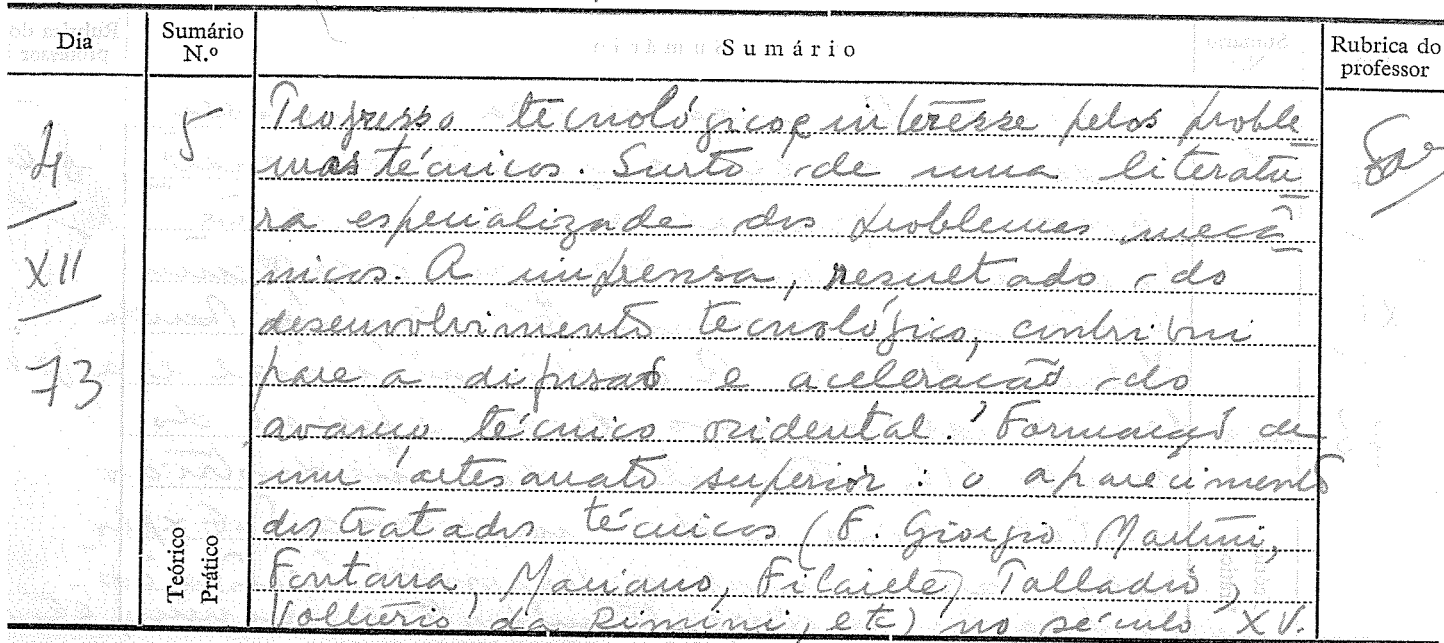 Dia
Sumário N.º
Sumário
Rubrica do professor
4
XII
73
5
Teórico
Prático
Progresso tecnológico e interesse pelos proble
mas técnicos. Surto de uma literatu
ra especializada dos problemas mecâ
nicos. A imprensa, resultado do
desenvolvimento tecnológico, contribui
para a difusão e aceleração do
avanço técnico ocidental. Formação de
um artesanato superior: o aparecimento
dos tratados técnicos (F. Giorgio Martini,
Fontana, Mariano, Filarete, Palladio,
Valturio da Rimini, etc) no século XV.